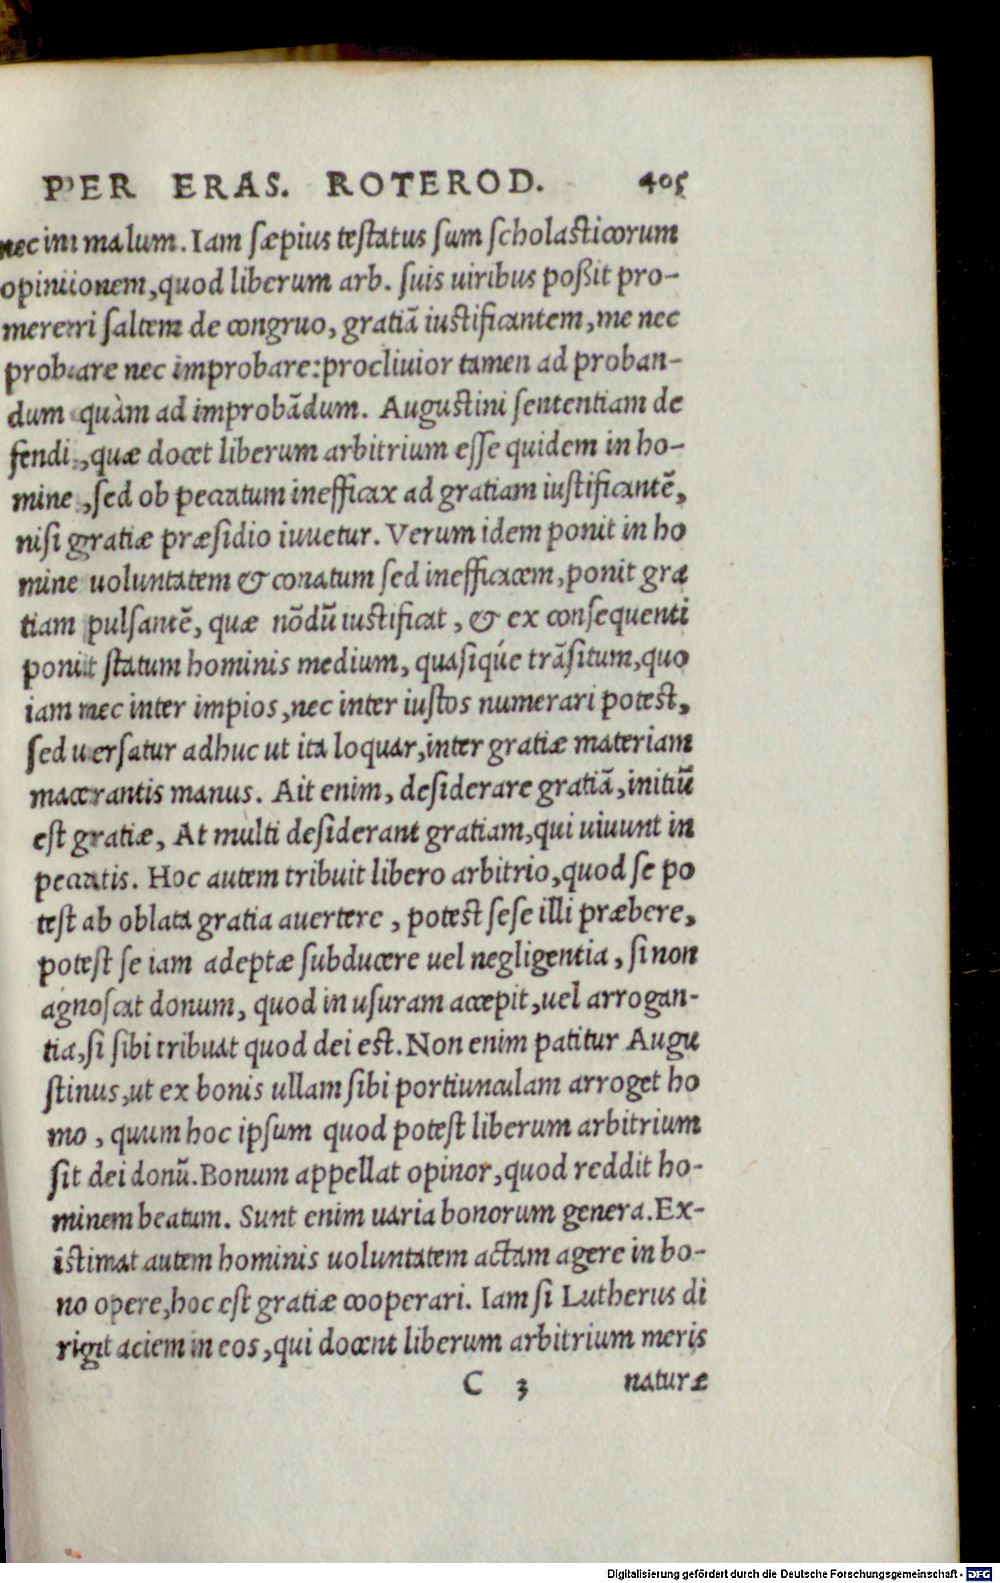 PER ERAS. ROTEROD. 405
nec in malum. Iam sæpius testatus sum scholasticorum
opinionem, quod liberum arb. suis uiribus poßit pro-
mereri saltem de congruo, gratiã iustificantem, me nec
probare nec improbare: procliuior tamen ad proban-
dum quàm ad improbãdum. Augustini sententiam de
fendi, quæ docet liberum arbitrium esse quidem in ho-
mine, sed ob peccatum inefficax ad gratiam iustificantẽ,
nisi gratiæ præsidio iuuetur. Verum idem ponit in ho
mine uoluntatem & conatum sed inefficacem, ponit gra
tiam pulsantẽ, quæ nõdũ iustificat, & ex consequenti
ponit statum hominis medium, quasiq́ue trãsitum, quo
iam nec inter impios, nec inter iustos numerari potest,
sed uersatur adhuc ut ita loquar, inter gratiæ materiam
macerantis manus. Ait enim, desiderare gratiã, initiũ
est gratiæ, At multi desiderant gratiam, qui uiuunt in
peccatis. Hoc autem tribuit libero arbitrio, quod se po
test ab oblata gratia auertere, potest sese illi præbere,
potest se iam adeptæ subducere uel negligentia, si non
agnoscat donum, quod in usuram accepit, uel arrogan-
tia, si sibi tribuat quod dei est. Non enim patitur Augu
stinus, ut ex bonis ullam sibi portiunculam arroget ho
mo, quum hoc ipsum quod potest liberum arbitrium
sit dei donũ. Bonum appellat opinor, quod reddit ho-
minem beatum. Sunt enim uaria bonorum genera. Ex-
istimat autem hominis uoluntatem actam agere in bo-
no opere, hoc est gratiæ cooperari. Iam si Lutherus di
rigit aciem in eos, qui docent liberum arbitrium meris
C 3 naturæ
Digitalisierung gefördert durch die Deutsche Forschungsgemeinschaft - DFG